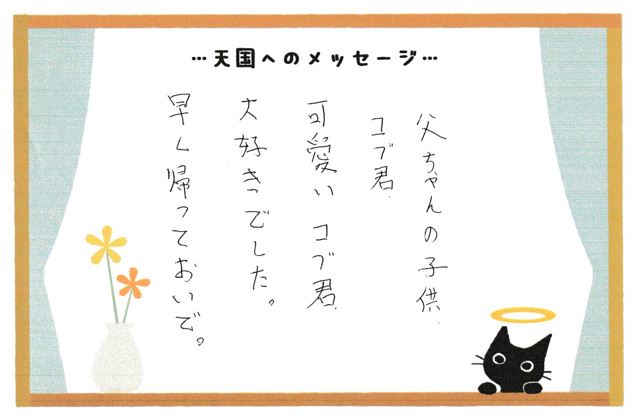 …天国へのメッセージ…
父ちゃんの子供
コブ君
可愛い コブ君
大好きでした。
早く帰っておいで。